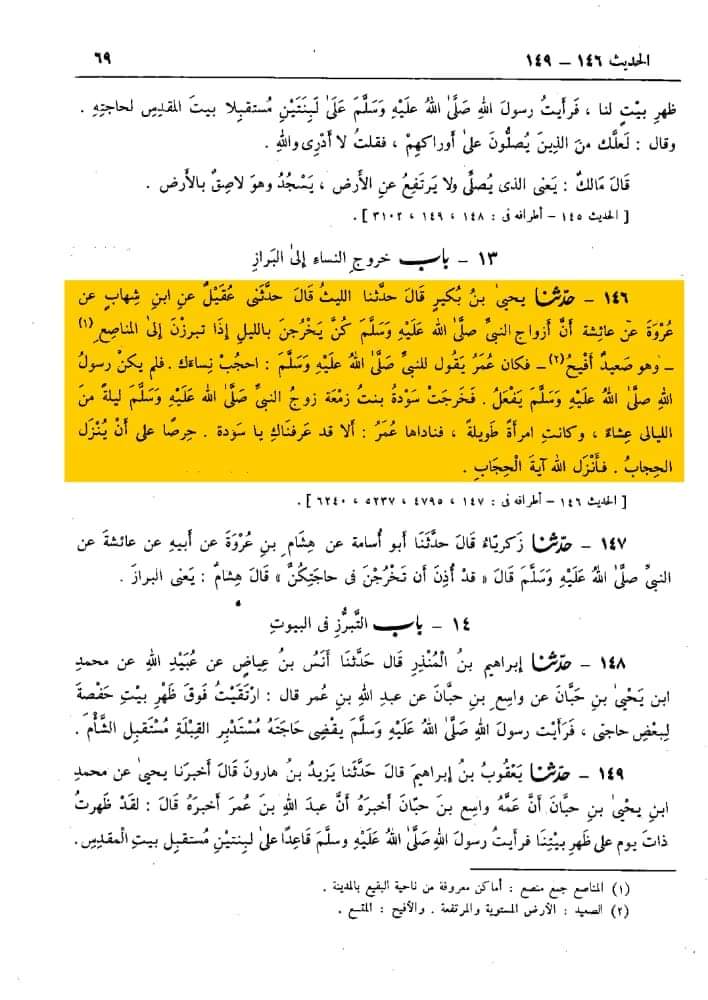 الحديث ١٤٦ - ١٤٩ ٦٩
ظهرِ بيْتٍ لنا ، فَرأيتُ رسولَ اللهِ صَلَّىٰ اللهُ عَلَيْهِ وَسَلَّمَ عَلَىٰ لَبِنَتَيْنِ مُستقبِلا بيتَ المقدِسِ لحاجتِهِ .
وقال : لَعلَّك منَ الذِينَ يُصلُّونَ علىٰ أوراكهِمْ ، فقلتُ لا أدْرِى واللهِ .
قَالَ مَالكٌ : يَعنى الذى يُصلِّى ولا يَرتَفِعُ عنِ الأرضِ ، يَسْجُدُ وهوَ لاصِقٌ بالأرض .
[ الحديث ١٤٥ - أطرافه فى : ١٤٨ ، ١٤٩ ، ٣١٠٢ ] .
١٣ - باب خروجِ النساءِ إلىٰ البَرازِ
١٤٦ - حدّثنا يحيىٰ بنُ بُكيرٍ قَالَ حدَّثنا الليثُ قَالَ حدَّثَنى عُقَيْلٌ عنِ ابنِ شِهابٍ عن
عُروَةَ عنْ عائشة أنَّ أزواج النبيِّ صلَّىٰ الله عَلَيْهِ وَسَلَّمَ كُنَّ يَخْرُجنَ بالليلِ إذَا تبرزْنَ إلىٰ المناصِعِ (١)
- وهو صَعيدٌ أفْيحُ(٢)- فكان عُمَرُ يَقُول للنبيِّ صَلَّىٰ اللهُ عَلَيْهِ وَسَلَّمَ : احجُبْ نِساءَك . فلم يكنْ رسولُ
اللهِ صَلَّىٰ اللهُ عليْهِ وَسَلَّمَ يَفْعَلُ . فَخَرجَتْ سَوْدةُ بنت زمْعَة زوجُ النبيِّ صلَّى اللهُ عَلَيْهِ وَسَلَّمَ ليلةً منَ
الليالى عِشاءً ، وكانتِ امرأةً طَويلةً ، فناداها عُمَرُ : ألا قد عَرفناكِ يا سَودة . حِرصًا على أنْ يُنْزَل
الحِجابُ . فأنْزَل الله آيةَ الْحِجَابِ .
[ الحديث ١٤٦ - أطرافه فى : ١٤٧ ، ٤٧٩٥ ، ٥٢٣٧ ، ٦٢٤٠ ] .
١٤٧ - حدّثنا زَكريَّاءُ قَالَ حدَّثَنَا أبو أُسامة عن هِشَامِ بنِ عُرْوَةَ عن أبيهِ عن عائشةَ عن
النبيِّ صلَّىٰ اللهُ عَلَيْهِ وَسَلَّمَ قَالَ « قدْ أُذِنَ أن تَخْرُجْنَ فى حاجَتِكُنَّ » قَالَ هِشامٌ : يَعنى البرازَ .
١٤ - باب التَّبرُّزِ فى البيوتِ
١٤٨ - حدّثنا إبراهيم بنُ المُنْذِرِ قَال حَدَّثَنَا أنَسُ بنُ عِياضٍ عن عُبَيدِ اللهِ عن محمدِ
ابن يَحْيىٰ بنِ حَبَّانَ عن واسِعِ بنِ حبَّانَ عن عبدِ اللهِ بنِ عُمر قال : ارْتَقَيْتُ فَوقَ ظَهْرِ بيْتِ حَفْصَةَ
لِبعْضِ حاجتى ، فَرَأيْت رسولَ اللهِ صَلَّىٰ اللهُ عَلَيْهِ وَسَلَّمَ يقْضِى حَاجَتَهُ مُسْتَدْبِر القِبْلَةِ مُسْتَقبِل الشَّأْم .
١٤٩ - حدّثنا يَعْقُوبُ بنُ إبراهِيمَ قالَ حَدَّثَنا يَزيدُ بنُ هارونَ قَالَ أخبرَنا يحيىٰ عن محمدِ
ابنِ يحْيىٰ بنِ حَبَّانَ أنَّ عَمَّهُ واسِع بنَ حبَّانَ أخبرَهُ أنَّ عبدَ اللهِ بنَ عُمَرَ أخبرَهُ قَالَ : لقَدْ ظَهرتُ
ذاتَ يوم على ظَهرِ بيْتِنَا فرأيتُ رسولَ اللهِ صَلَّىٰ اللهُ عَلَيْهِ وسلَّمَ قَاعِدًا علىٰ لبِنتيْنِ مُستقبلَ بيتِ الْمقدِس .
(١) المناصع جمع منصع : أماكن معروفة من ناحية البقيع بالمدينة .
(٢) الصعيد : الأرض المستوية والمرتفعة . والأفيح : المتسع .